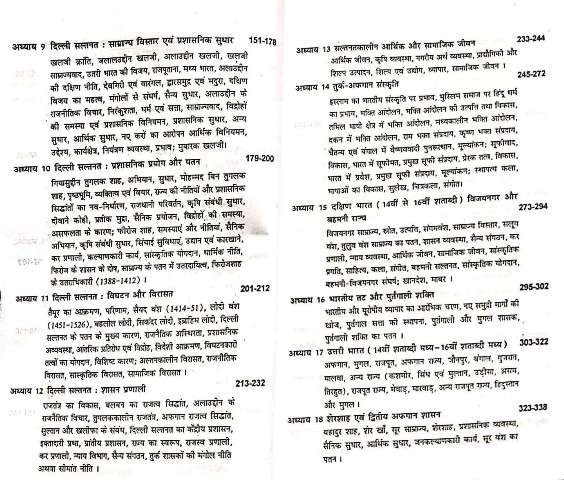 अध्याय 9 दिल्ली सल्तनत : साम्राज्य विस्तार एवं प्रशासनिक सुधार 151-178
खलजी क्रांति, जलालउद्दीन खलजी, अलाउद्दीन खलजी, खलजी
साम्राज्यवाद, उत्तरी भारत की विजय, राजपूताना, मध्य भारत, अलाउद्दीन
की दक्षिण नीति, देवगिरी एवं वारंगल, द्वारसमुद्र एवं मदुरा, दक्षिण
विजय का महत्व, मंगोलों से संघर्ष, सैन्य सुधार, अलाउद्दीन के
राजनीतिक विचार, निरंकुशता, धर्म एवं सत्ता, साम्राज्यवाद, विद्रोहों
की समस्या एवं प्रशासनिक विनियमन, प्रशासनिक सुधार, अन्य
सुधार, आर्थिक सुधार, नए करों का आरोपन आर्थिक विनियमन,
उद्देश्य, कार्यक्षेत्र, नियंत्रण व्यवस्था, प्रभाव; मुबारक खलजी।
अध्याय 10 दिल्ली सल्तनत : प्रशासनिक प्रयोग और पतन 179-200
गियासुद्दीन तुगलक शाह, अभियान, सुधार, मोहम्मद बिन तुगलक
शाह, पृष्ठभूमि, व्यक्तित्व एवं विचार, राज्य की नीतियाँ और प्रशासनिक
सिद्धांतों का नव-निर्धारण, राजधानी परिवर्तन, कृषि संबंधी सुधार,
दीवाने कोही, प्रतीक मुद्रा, सैनिक प्रयोजन, विद्रोहों की समस्या,
असफलता के कारण; फीरोज शाह, समस्याएं और नीतियां, सैनिक
अभियान, कृषि संबंधी सुधार, सिंचाई सुविधाएं, उद्यान एवं कारखाने,
कर प्रणाली, कल्याणकारी कार्य, सांस्कृतिक योगदान, धार्मिक नीति,
फिरोज के शासन के दोष, साम्राज्य के पतन में उत्तरदायित्व, फिरोजशाह
के उत्तराधिकारी (1388-1412) ।
अध्याय 11 दिल्ली सल्तनत : विघटन और विरासत 201-212
तैमूर का आक्रमण, परिणाम, सैयद वंश (1414-51), लोदी वंश
(1451-1526), बहलोल लोदी, सिकंदर लोदी, इब्राहिम लोदी, दिल्ली
सल्तनत के पतन के मुख्य कारण, राजनीतिक अस्थिरता, प्रशासनिक
अव्यवस्था, आंतरिक प्रतिरोध एवं विद्रोह, विदेशी आक्रमण, विघटनकारी
तत्वों का योगदान, विशिष्ट कारण; सल्तनकालीन विरासत, राजनीतिक
विरासत, सांस्कृतिक विरासत, सामाजिक विरासत।
अध्याय 12 दिल्ली सल्तनत : शासन प्रणाली 213-232
राजतंत्र का विकास, बलबन का राजत्व सिद्धांत, अलाउद्दीन के
राजनैतिक विचार, तुगलककालीन राजतंत्र, अफगान राजत्व सिद्धांत,
सुल्तान और खलीफा के संबंध, दिल्ली सल्तनत का केंद्रीय प्रशासन,
इक्तादारी प्रथा, प्रांतीय प्रशासन, राज्य का स्वरूप, राजस्व प्रणाली,
कर प्रणाली, न्याय विभाग, सैन्य संगठन, तुर्क शासकों की मंगोल नीति
अथवा सीमांत नीति ।
अध्याय 13 सल्तनतकालीन आर्थिक और सामाजिक जीवन 233-244
आर्थिक जीवन, कृषि व्यवस्था, नगरीय अर्थ व्यवस्था, प्रद्यौगिकी और
शिल्प उत्पादन, शिल्प एवं उद्योग, व्यापार, सामाजिक जीवन ।
अध्याय 14 तुर्क-अफगान संस्कृति 245-272
इस्लाम का भारतीय संस्कृति पर प्रभाव, मुस्लिम समाज पर हिंदू धर्म
का प्रभाव, भक्ति आंदोलन, भक्ति आंदोलन की उत्पत्ति तथा विकास,
तमिल भाषी क्षेत्र में भक्ति आंदोलन, मध्यकालीन भक्ति आंदोलन,
दकन में भक्ति आंदोलन, राम भक्त संप्रदाय, कृष्ण भक्त संप्रदाय,
चैतन्य एवं बंगाल में वैष्णववादी पुनरुत्थान, मूल्यांकन; सूफीवाद,
विकास, भारत में सूफीमत, प्रमुख सूफी संप्रदाय, प्रेरक तत्व, विकास,
भारत में प्रवेश, प्रमुख सूफी संप्रदाय, मूल्यांकन; स्थापत्य कला,
भाषाओं का विकास, सुलेख, चित्रकला, संगीत।
अध्याय 15 दक्षिण भारत (14वीं से 16वीं शताब्दी) विजयनगर और
बहमनी राज्य 273-294
विजयनगर साम्राज्य, स्रोत, उत्पत्ति, संगमवंश, साम्राज्य विस्तार, सलुव
वंश, तुलुव वंश साम्राज्य का पतन, शासन व्यवस्था, सैन्य संगठन, कर
प्रणाली, न्याय व्यवस्था, आर्थिक जीवन, सामाजिक जीवन, सांस्कृतिक
प्रगति, साहित्य, कला, संगीत, बहमनी सल्तनत, सांस्कृतिक योगदान,
बहमनी-विजयनगर संघर्ष; खानदेश, माबर ।
अध्याय 16 भारतीय तट और पुर्तगाली शक्ति 295-302
भारतीय और यूरोपीय व्यापार का आरंभिक चरण, नए समुद्री मार्गों की
खोज, पुर्तगाली सत्ता की स्थापना, पुर्तगाली और मुगल शासक,
पुर्तगाली शक्ति का पतन ।
अध्याय 17 उत्तरी भारत (14वीं शताब्दी मध्य—16वीं शताब्दी मध्य) 303-322
अफगान, मुगल, राजपूत, अफगान राज्य, जौनपुर, बंगाल, गुजरात,
मालवा, अन्य राज्य (कश्मीर, सिंध एवं मुल्तान, उड़ीसा, असम,
तिरहुत), राजपूत राज्य, मेवाड़, मारवाड़, अन्य राजपूत राज्य, हिंदुस्तान
और मुगल।
अध्याय 18 शेरशाह एवं द्वितीय अफगान शासन 323-338
बहादुर शाह, शेर खाँ, सूर साम्राज्य, शेरशाह, प्रशासनिक व्यवस्था,
सैनिक सुधार, आर्थिक सुधार, जनकल्याणकारी कार्य, सूर वंश का
पतन ।